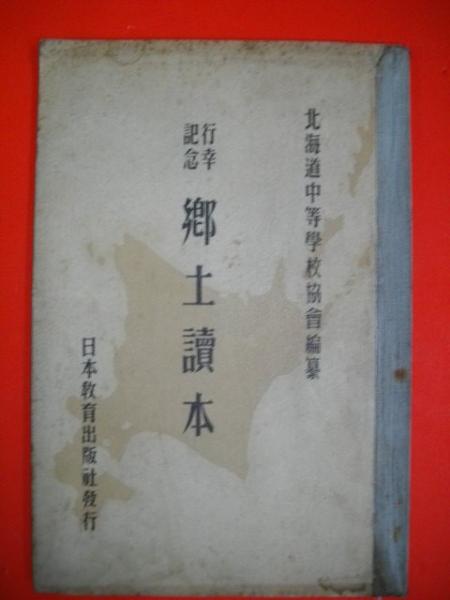 北海道中等學校協會編纂
行幸
記念
鄕土讀本
日本敎育出版社發行